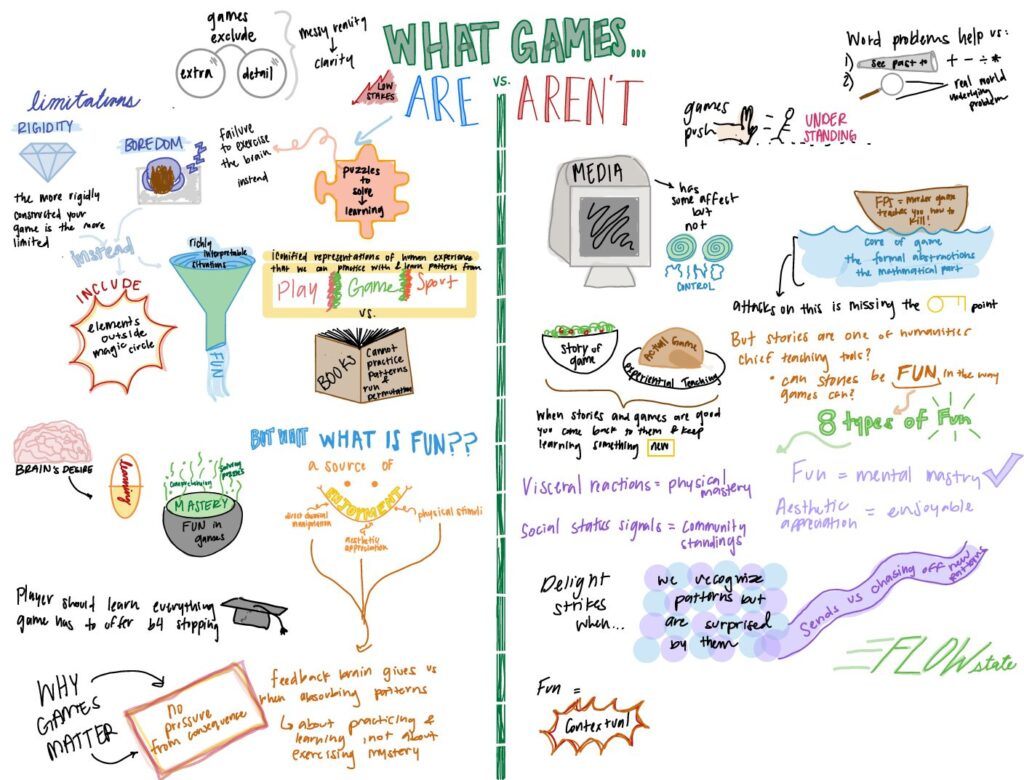 WHAT GAMES...
ARE
vs.
AREN'T
games
exclude
extra
detail
messy reality
↓
clarity
LOW
STAKES
limitations
RIGIDITY
the more rigidly
constructed your
game is the more
limited
BOREDOM
ZZZ
failure
to exercise
the brain
instead
puzzles
to
solve
↓
learning
instead
INCLUDE
elements
outside
magic
circle
richly
interpretable
situations
FUN
Iconified representations of human experience
that we can practice with & learn patterns from
Play
Game
Sport
vs.
BOOKS
Cannot
practice
patterns
&
run
permutation
BRAIN'S DESIRE
learning
comprehending
solving
puzzles
MASTERY
FUN in
games
BUT WAIT WHAT IS FUN??
a source of
ENJOYMENT
direct chemical
manipulation
aesthetic
appreciation
physical stimuli
Player should learn everything
game has to offer b4 stopping
WHY
GAMES
MATTER
No
pressure
from consequence
feedback brain gives us
when absorbing patterns
↳ about practicing &
learning, not about
exercising mystery
Word problems help us:
1) see past to + - ÷ *
2) real world
underlying
problem
games
push
UNDER
STANDING
MEDIA
has
some affect
but
not
CONTROL
FPS = murder game
teaches you how to
kill!
core of game
the formal abstractions
the mathematical part
attacks on this is missing the point
Story of
game
Actual Game
experiential Teaching
When stories and games are good
you come back to them & keep
learning something new
But stories are one of humanities
chief teaching tools?
• can stories be FUN in the way
games can?
8 types of Fun
Visceral reactions = physical
mastery
Fun = mental mastry
Social status signals = Community
standings
Aesthetic
appreciation = enjoyable
Delight
strikes
when...
we recognize
patterns but
are surprised
by them
Sends us chasing off new
patterns
FLOW state
Fun =
Contextual